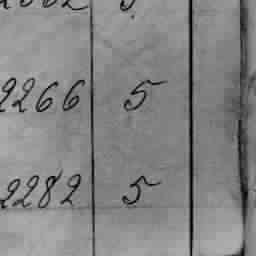 2266 5
2282 5